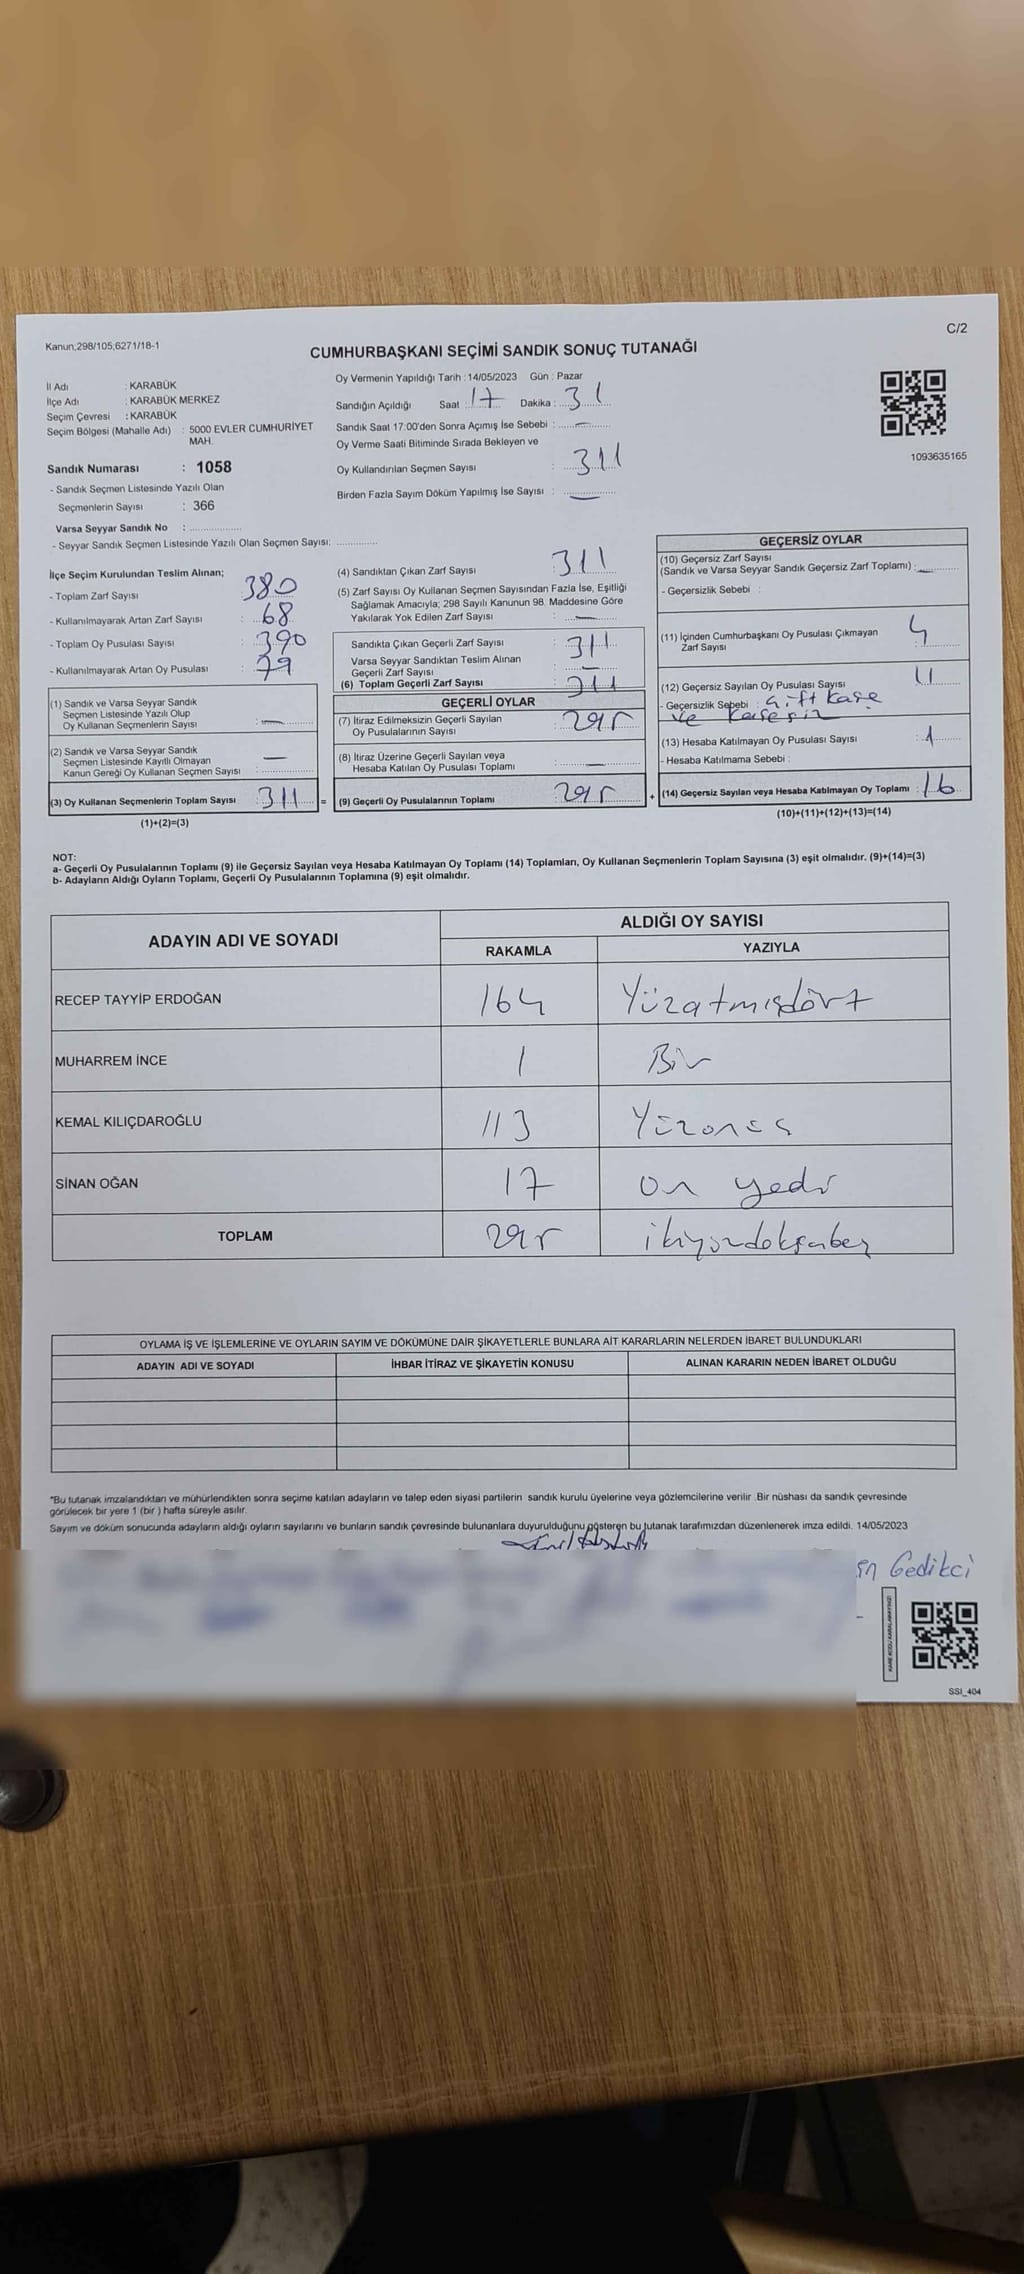 Kanun;298/105;6271/18-1
C/2
CUMHURBAŞKANI SEÇİMİ SANDIK SONUÇ TUTANAĞI
İl Adı : KARABÜK
İlçe Adı : KARABÜK MERKEZ
Seçim Çevresi : KARABÜK
Seçim Bölgesi (Mahalle Adı) : 5000 EVLER CUMHURİYET
MAH.
Sandık Numarası : 1058
- Sandık Seçmen Listesinde Yazılı Olan
Seçmenlerin Sayısı : 366
Varsa Seyyar Sandık No :
- Seyyar Sandık Seçmen Listesinde Yazılı Olan Seçmen Sayısı:
Oy Vermenin Yapıldığı Tarih : 14/05/2023 Gün : Pazar
Sandığın Açıldığı Saat : 17 Dakika : 31
Sandık Saat 17:00'den Sonra Açımış İse Sebebi : —
Oy Verme Saati Bitiminde Sırada Bekleyen ve
Oy Kullandırılan Seçmen Sayısı : 311
Birden Fazla Sayım Döküm Yapılmış İse Sayısı : —
1093635165
İlçe Seçim Kurulundan Teslim Alınan;
- Toplam Zarf Sayısı : 380
- Kullanılmayarak Artan Zarf Sayısı : 68
- Toplam Oy Pusulası Sayısı : 390
- Kullanılmayarak Artan Oy Pusulası : 79
(1) Sandık ve Varsa Seyyar Sandık
Seçmen Listesinde Yazılı Olup
Oy Kullanan Seçmenlerin Sayısı : —
(2) Sandık ve Varsa Seyyar Sandık
Seçmen Listesinde Kayıtlı Olmayan
Kanun Gereği Oy Kullanan Seçmen Sayısı : —
(3) Oy Kullanan Seçmenlerin Toplam Sayısı : 311 =
(1)+(2)=(3)
(4) Sandıktan Çıkan Zarf Sayısı : 311
(5) Zarf Sayısı Oy Kullanan Seçmen Sayısından Fazla İse, Eşitliği
Sağlamak Amacıyla; 298 Sayılı Kanunun 98. Maddesine Göre
Yakılarak Yok Edilen Zarf Sayısı : —
Sandıkta Çıkan Geçerli Zarf Sayısı : 311
Varsa Seyyar Sandıktan Teslim Alınan
Geçerli Zarf Sayısı : —
(6) Toplam Geçerli Zarf Sayısı : 311
GEÇERLİ OYLAR
(7) İtiraz Edilmeksizin Geçerli Sayılan
Oy Pusulalarının Sayısı : 295
(8) İtiraz Üzerine Geçerli Sayılan veya
Hesaba Katılan Oy Pusulası Toplamı : —
(9) Geçerli Oy Pusulalarının Toplamı : 295 +
GEÇERSİZ OYLAR
(10) Geçersiz Zarf Sayısı
(Sandık ve Varsa Seyyar Sandık Geçersiz Zarf Toplamı) : —
- Geçersizlik Sebebi :
(11) İçinden Cumhurbaşkanı Oy Pusulası Çıkmayan
Zarf Sayısı : 4
(12) Geçersiz Sayılan Oy Pusulası Sayısı : 11
- Geçersizlik Sebebi : Çift Kaşe
ve Kaşesiz
(13) Hesaba Katılmayan Oy Pusulası Sayısı : 1
- Hesaba Katılmama Sebebi :
(14) Geçersiz Sayılan veya Hesaba Katılmayan Oy Toplamı : 16
(10)+(11)+(12)+(13)=(14)
NOT:
a- Geçerli Oy Pusulalarının Toplamı (9) ile Geçersiz Sayılan veya Hesaba Katılmayan Oy Toplamı (14) Toplamları, Oy Kullanan Seçmenlerin Toplam Sayısına (3) eşit olmalıdır. (9)+(14)=(3)
b- Adayların Aldığı Oyların Toplamı, Geçerli Oy Pusulalarının Toplamına (9) eşit olmalıdır.
ADAYIN ADI VE SOYADI ALDIĞI OY SAYISI
RAKAMLA YAZIYLA
RECEP TAYYİP ERDOĞAN 164 Yüzatmışdört
MUHARREM İNCE 1 Bir
KEMAL KILIÇDAROĞLU 113 Yüzonüç
SİNAN OĞAN 17 on yedi
TOPLAM 295 ikiyüzdoksanbeş
OYLAMA İŞ VE İŞLEMLERİNE VE OYLARIN SAYIM VE DÖKÜMÜNE DAİR ŞİKAYETLERLE BUNLARA AİT KARARLARIN NELERDEN İBARET BULUNDUKLARI
ADAYIN ADI VE SOYADI İHBAR İTİRAZ VE ŞİKAYETİN KONUSU ALINAN KARARIN NEDEN İBARET OLDUĞU
"Bu tutanak imzalandıktan ve mühürlendikten sonra seçime katılan adayların ve talep eden siyasi partilerin sandık kurulu üyelerine veya gözlemcilerine verilir .Bir nüshası da sandık çevresinde
görülecek bir yere 1 (bir ) hafta süreyle asılır.
Sayım ve döküm sonucunda adayların aldığı oyların sayılarını ve bunların sandık çevresinde bulunanlara duyurulduğunu gösteren bu tutanak tarafımızdan düzenlenerek imza edildi. 14/05/2023
Gedikci
SSI_404